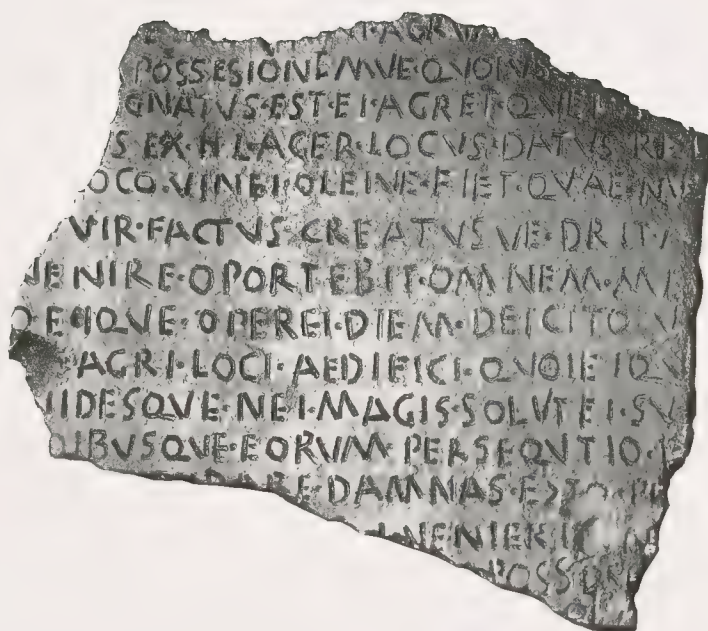 AGRVM
POSSESIONEMVE·QVOIVS
GNATVS·EST·EI·AGREI·QVEI
S·EX·H·L·AGER·LOCVS·DATVS·RE
OCO·VINEI·OLEIVE·FIET·QVAE·NV
VIR·FACTVS·CREATVSVE·
VENIRE·OPORTEBIT·OMNEM·M
DEIQVE·OPEREI·DIEM·DEICITO·V
AGRI·LOCI·AEDIFICI·QVOIEIQV
IDESQVE·NEI·MAGIS·SOLVTEI·SV
DIBVSQVE·EORVM·PERSEQVTIO·
DARE·DAMNAS·ESTO·
VENIERIT
POSSIDE